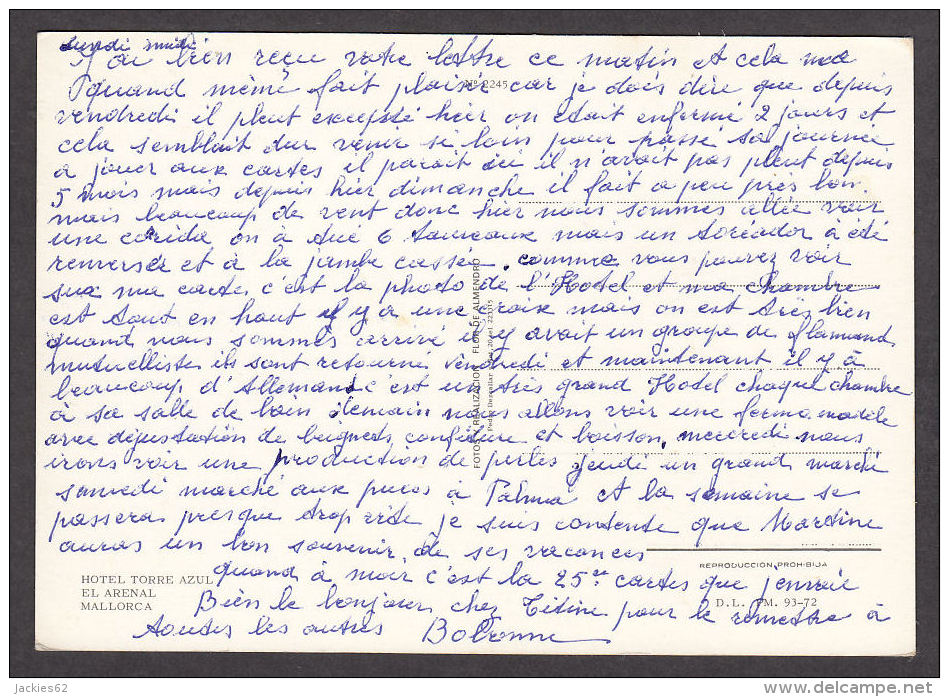 lundi midi
J'ai bien reçu votre lettre ce matin et cela ma
quand même fait plaisir car je dois dire que depuis
vendredi il pleut excepté hier on était enfermé 2 jours et
cela semblait dur venir si loin pour passé sa journée
à jouer aux cartes il parait ici il n'avait pas pleut depuis
5 mois mais depuis hier dimanche il fait a peu près bon.
mais beaucoup de vent donc hier nous sommes allée voir
une corida on à tué 6 taureaux mais un toréador à été
renversér et à la jambe cassée. comme vous pouvez voir
sur ma carte c'est la photo de l'Hotel et ma chambre
est tout en haut il y a une croix mais on est très bien
quand nous sommes arrivé il y avait un groupe de flamand
mutuelliste ils sont retourné vendredi et maintenant il y à
beaucoup d'Allemand c'est un très grand Hotel chaque chambre
à sa salle de bain demain nous allons voir une ferme modèle
avec dégustation de beignets, confiture et boisson, mercredi nous
irons voir une production de perles jeudi un grand marché
samedi marché aux puces à Palma et la semaine se
passera presque trop vite je suis contente que Martine
auras un bon souvenir de ses vacances
quand à moir c'est la 25re cartes que j'envoie
Bien le bonjour chez Titine pour le remettre à
toutes les autres Bobonne
Nº 2245
FOTOS Y REALIZACION - FLOR DE ALMENDRO
REPRODUCCION PROHIBIJA
D. L. PM. 93-72
HOTEL TORRE AZUL
EL ARENAL
MALLORCA
jackies62
www.delcampe.net